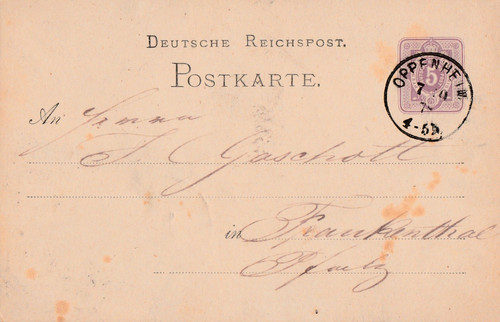 DEUTSCHE REICHSPOST.
POSTKARTE.
5
OPPENHEIM
7 10
7
4-5N
An Herrn
J. Gaschott
in Frankenthal
Pfalz